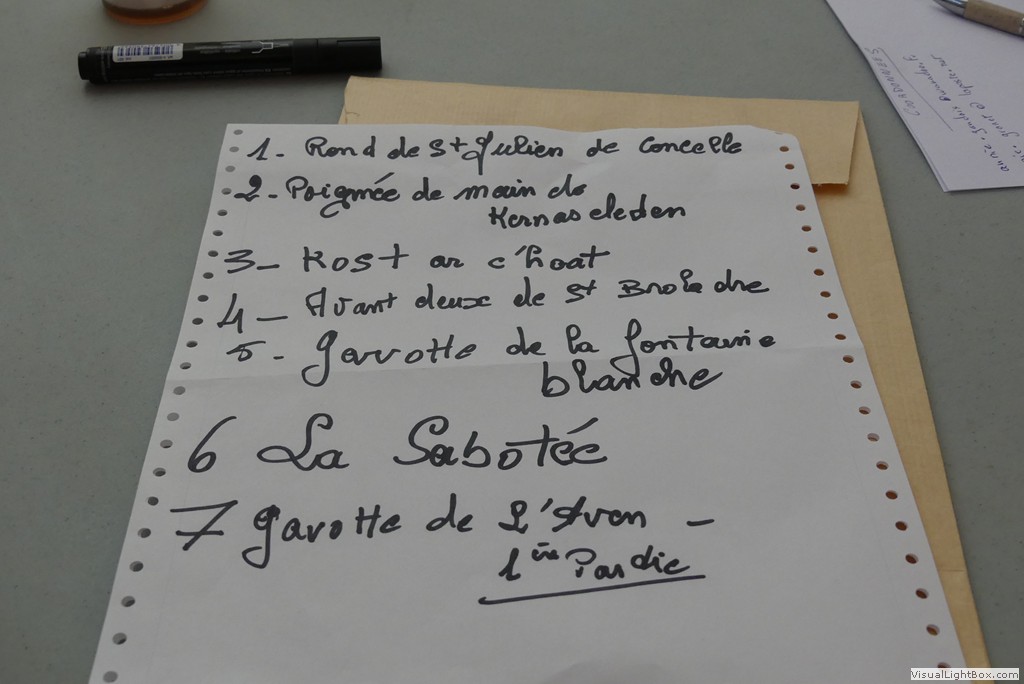 1- Rond de St Julien de Concelle
2- Poignée de main de
Kernaseleden
3- Kost ar c'hoat
4- Avant deux de St Broladre
5- gavotte de la fontaine
blanche
6 La Sabotée
7 gavotte de L'Aven -
1ère Partie
VisualLightBox.com